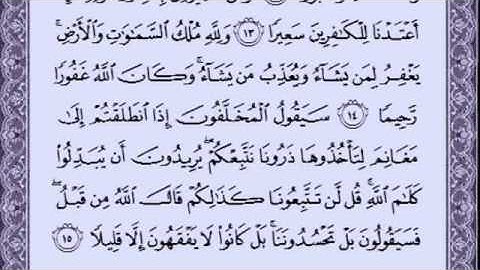 أَعْتَدْنَا لِلْكَٰفِرِينَ سَعِيرًا ١٣ وَلِلَّهِ مُلْكُ ٱلسَّمَٰوَٰتِ وَٱلْأَرْضِ ۚ
يَغْفِرُ لِمَن يَشَآءُ وَيُعَذِّبُ مَن يَشَآءُ ۚ وَكَانَ ٱللَّهُ غَفُورًا
رَّحِيمًا ١٤ سَيَقُولُ ٱلْمُخَلَّفُونَ إِذَا ٱنطَلَقْتُمْ إِلَىٰ
مَغَانِمَ لِتَأْخُذُوهَا ذَرُونَا نَتَّبِعْكُمْ ۖ يُرِيدُونَ أَن يُبَدِّلُوا۟
كَلَٰمَ ٱللَّهِ ۚ قُل لَّن تَتَّبِعُونَا كَذَٰلِكُمْ قَالَ ٱللَّهُ مِن قَبْلُ ۖ
فَسَيَقُولُونَ بَلْ تَحْسُدُونَنَا ۚ بَلْ كَانُوا۟ لَا يَفْقَهُونَ إِلَّا قَلِيلًا ١٥